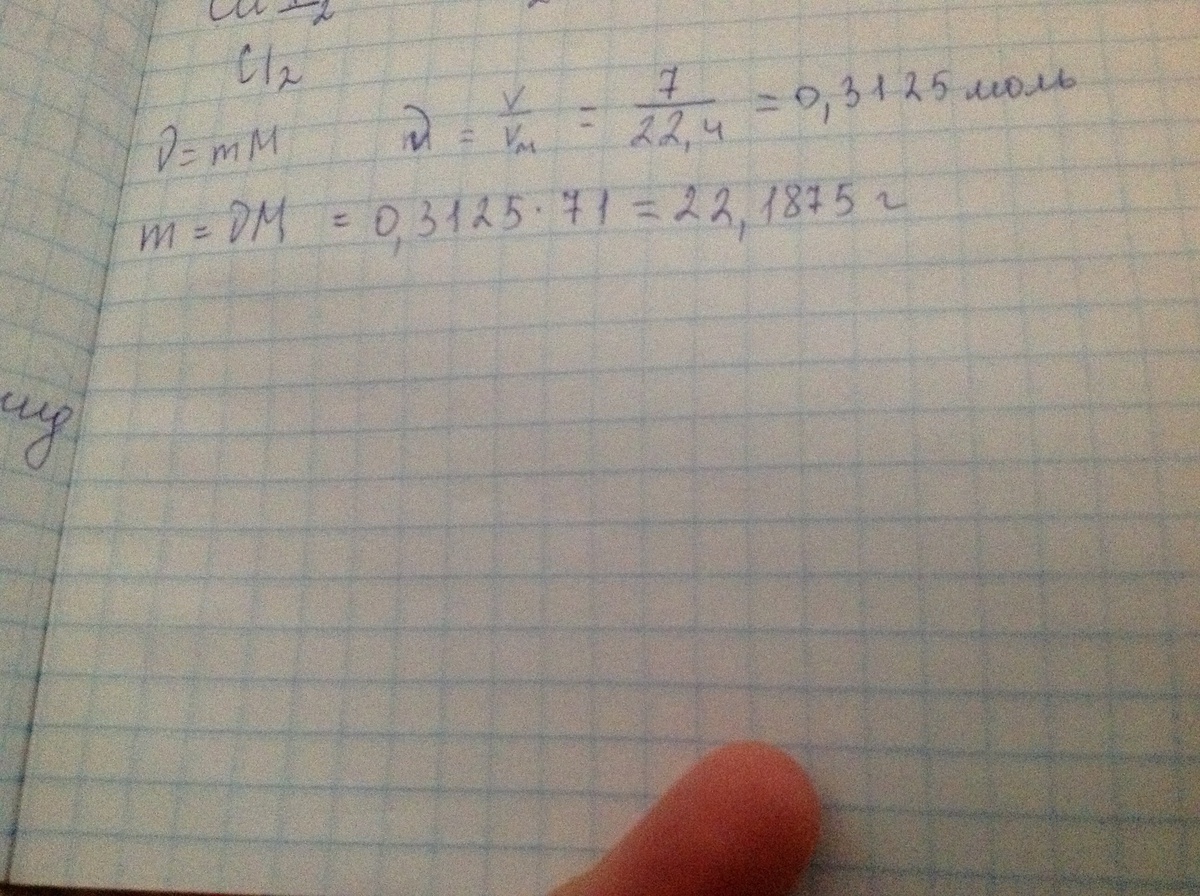 Cl₂
ν = mM ν = V/Vм = 7/22,4 = 0,3125 моль
m = νM = 0,3125 · 71 = 22,1875 г